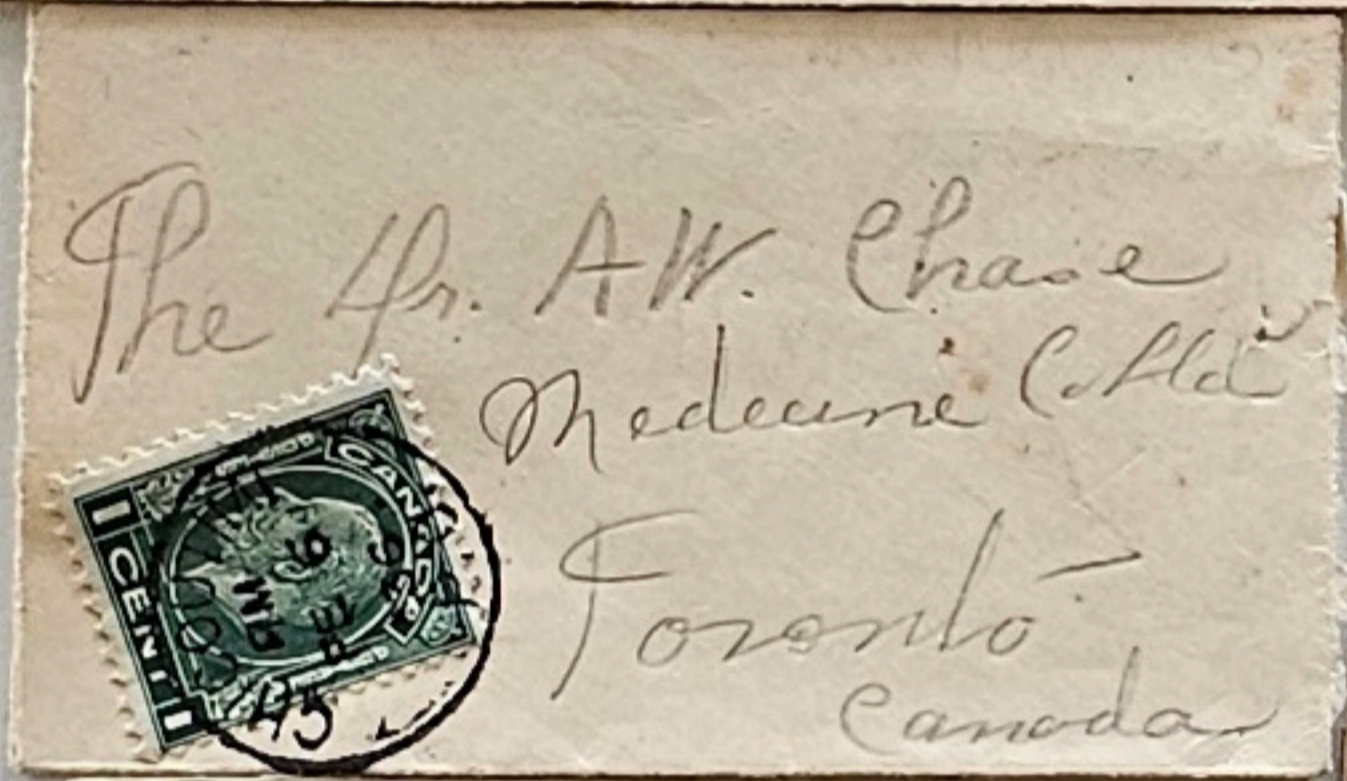 The Dr. A.W. Chase
Medecine Co. Ltd
Toronto
Canada
CANADA
1 CENT 1